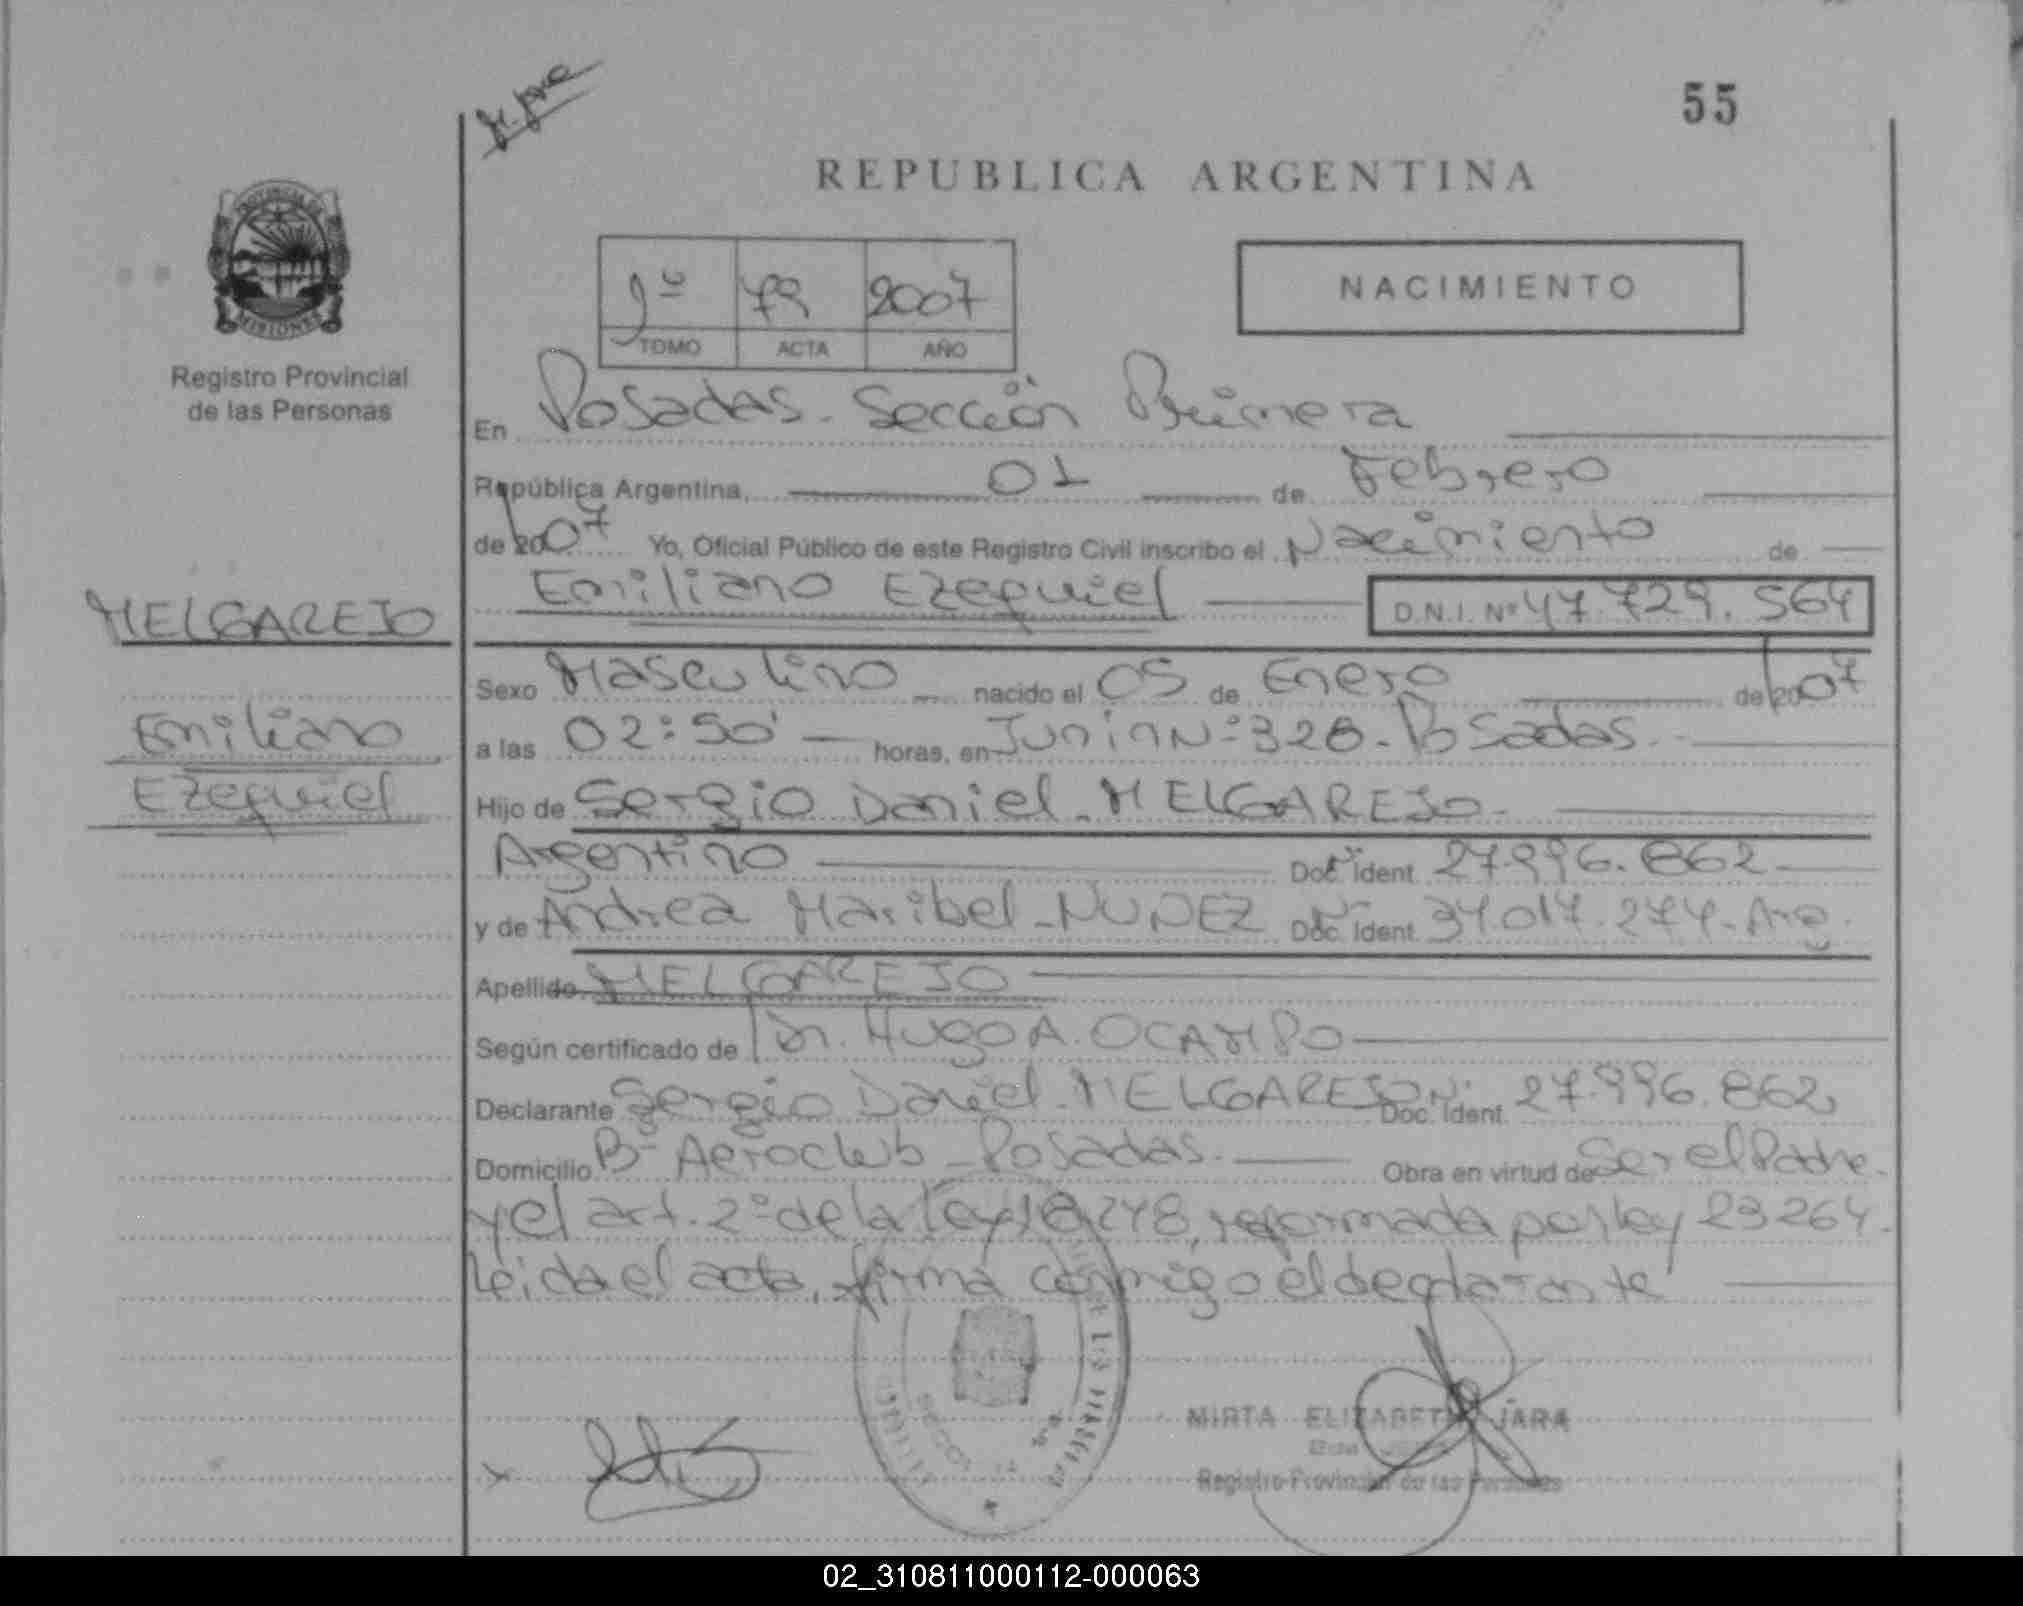 55
REPUBLICA ARGENTINA
PROVINCIA DE
MISIONES
Registro Provincial
de las Personas
1º 79 2007
TOMO ACTA AÑO
NACIMIENTO
En Posadas. Sección Primera
República Argentina, 01 de Febrero
de 2007 Yo, Oficial Público de este Registro Civil inscribo el Nacimiento de
Emiliano Ezequiel D.N.I. Nº 47.729.564
MELGAREJO
Emiliano
Ezequiel
Sexo Masculino nacido el 05 de Enero de 2007
a las 02:50' horas, en Junin Nº 328. Posadas.
Hijo de Sergio Daniel. MELGAREJO.
Argentino Doc. Ident 27.996.862
y de Andrea Maribel. NUÑEZ Doc. Ident 34.017.274. Arg.
Apellido MELGAREJO
Según certificado de Dr. Hugo A. OCAMPO
Declarante Sergio Daniel. MELGAREJO Nº Doc. Ident 27.996.862
Domicilio Bº Aeroclub - Posadas. Obra en virtud de Ser el Padre.
y el art. 2º de la Ley 18.248, reformada por ley 23264.
Leida el acta, firma conmigo el declarante
MIRTA ELIZABETH JARA
Registro Provincial de las Personas
02_310811000112-000063